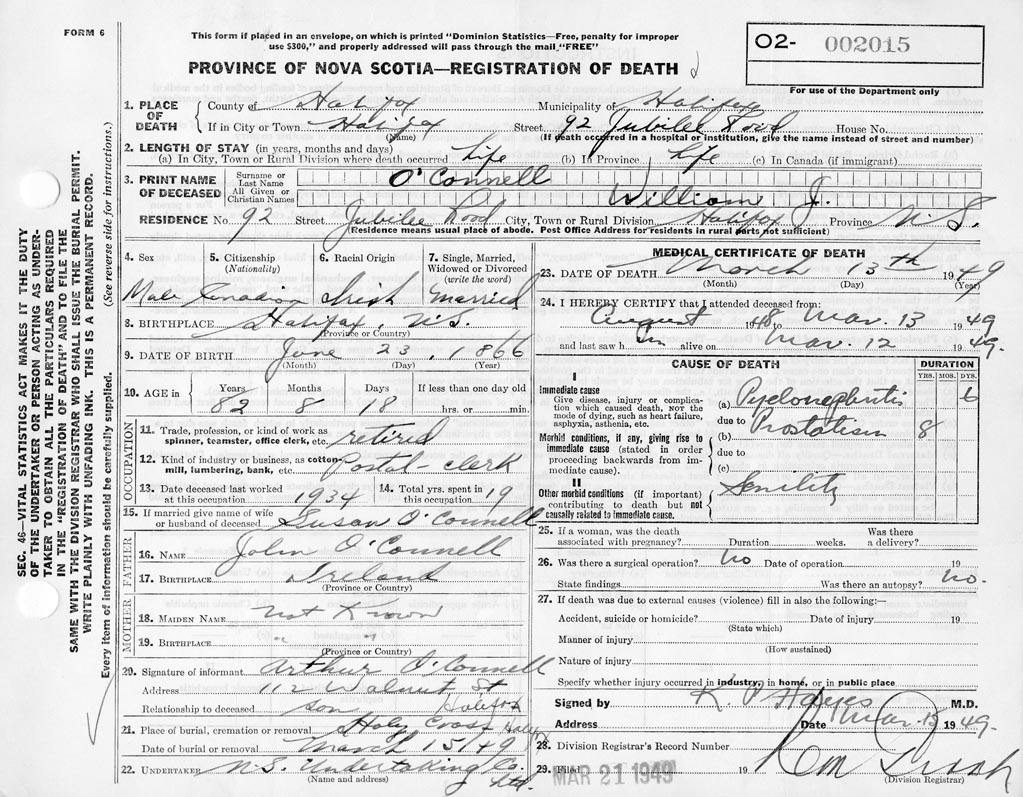 FORM 6
This form if placed in an envelope, on which is printed "Dominion Statistics—Free, penalty for improper
use $300," and properly addressed will pass through the mail "FREE"
PROVINCE OF NOVA SCOTIA—REGISTRATION OF DEATH
O2- 002015
For use of the Department only
1. PLACE OF DEATH
County of Halifax Municipality of Halifax
If in City or Town Halifax Street 92 Jubilee Road House No.
(Name) (If death occurred in a hospital or institution, give the name instead of street and number)
2. LENGTH OF STAY (in years, months and days)
(a) In City, Town or Rural Division where death occurred Life (b) In Province Life (c) In Canada (if immigrant)
3. PRINT NAME OF DECEASED
Surname or Last Name O'Connell
All Given or Christian Names William J.
RESIDENCE No. 92 Street Jubilee Road City, Town or Rural Division Halifax Province N.S.
(Residence means usual place of abode. Post Office Address for residents in rural parts, not sufficient)
4. Sex
Male
5. Citizenship
(Nationality)
Canadian
6. Racial Origin
Irish
7. Single, Married,
Widowed or Divorced
(write the word)
Married
8. BIRTHPLACE Halifax, N.S.
(Province or Country)
9. DATE OF BIRTH June 23, 1866
(Month) (Day) (Year)
10. AGE in
Years Months Days If less than one day old
82 8 18 hrs. or min.
OCCUPATION
11. Trade, profession, or kind of work as
spinner, teamster, office clerk, etc. retired
12. Kind of industry or business, as cotton-
mill, lumbering, bank, etc. Postal-clerk
13. Date deceased last worked
at this occupation. 1934
14. Total yrs. spent in
this occupation. 19
15. If married give name of wife
or husband of deceased Susan O'Connell
FATHER
16. NAME John O'Connell
17. BIRTHPLACE Ireland
(Province or Country)
MOTHER
18. MAIDEN NAME Not Known
19. BIRTHPLACE " "
(Province or Country)
20. Signature of informant Arthur O'Connell
Address 112 Walnut St
Relationship to deceased son Halifax
21. Place of burial, cremation or removal Holy Cross Halifax
Date of burial or removal March 15/49
22. UNDERTAKER N.S. Undertaking Co. Ltd.
(Name and address)
MEDICAL CERTIFICATE OF DEATH
23. DATE OF DEATH March 13th 1949
(Month) (Day) (Year)
24. I HEREBY CERTIFY that I attended deceased from:
August 1948 to Mar. 13 1949
and last saw him alive on Mar. 12 1949.
CAUSE OF DEATH DURATION
YRS. MOS. DYS.
I
Immediate cause
Give disease, injury or complica-
tion which caused death, NOT the
mode of dying, such as heart failure,
asphyxia, asthenia, etc.
(a) Pyelonephritis 6
due to
Morbid conditions, if any, giving rise to
immediate cause (stated in order
proceeding backwards from im-
mediate cause).
(b) Prostatism 8
due to
(c)
II
Other morbid conditions (if important)
contributing to death but not
causally related to immediate cause.
Senility
25. If a woman, was the death Was there
associated with pregnancy? Duration weeks. a delivery?
26. Was there a surgical operation? no Date of operation 19
State findings Was there an autopsy? no.
27. If death was due to external causes (violence) fill in also the following:—
Accident, suicide or homicide? Date of injury 19
(State which)
Manner of injury
(How sustained)
Nature of injury
Specify whether injury occurred in industry, in home, or in public place
Signed by K. P. Hayes M.D.
Address Date Mar. 15 1949.
28. Division Registrar's Record Number
29. Filed MAR 21 1949 19
(Division Registrar)
SEC. 46—VITAL STATISTICS ACT MAKES IT THE DUTY
OF THE UNDERTAKER OR PERSON ACTING AS UNDER-
TAKER TO OBTAIN ALL THE PARTICULARS REQUIRED
IN THE "REGISTRATION OF DEATH" AND TO FILE THE
SAME WITH THE DIVISION REGISTRAR WHO SHALL ISSUE THE BURIAL PERMIT.
WRITE PLAINLY WITH UNFADING INK. THIS IS A PERMANENT RECORD.
Every item of information should be carefully supplied. (See reverse side for instructions.)